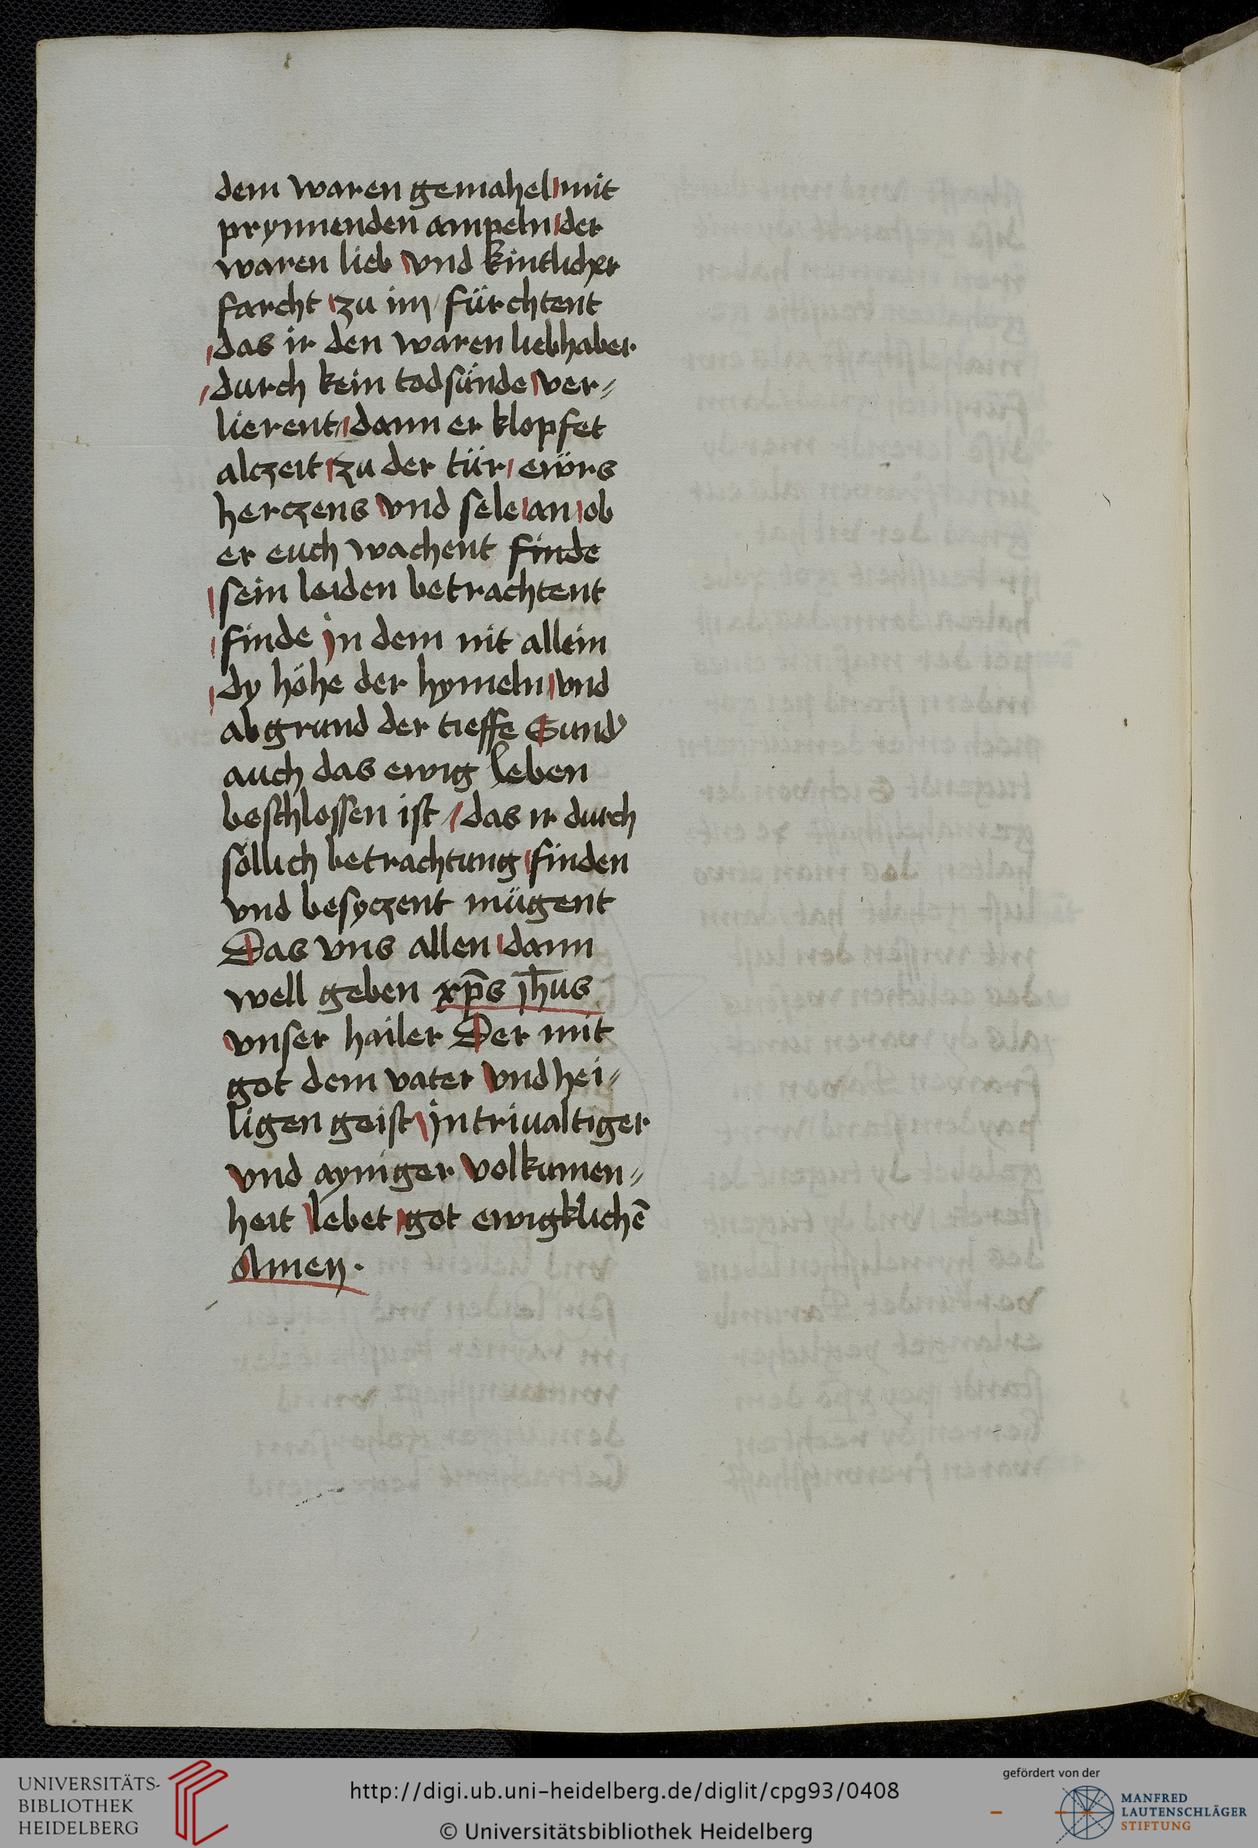 dem waren gemahel mit
prynnenden ampeln der
waren lieb vnd kintlicher
farcht zu im / fürchtent
das ir den waren liebhaber
durch kein todsünde ver⸗
lierent dann er klopfet
alczeit zu der tür ewrs
herczens vnd sele an ob
er euch wachent finde
sein leiden betrachtent
finde jn dem nit allein
dy höhe der hymeln vnd
abgrund der tieffe Sund'
auch das ewig leben
beschlossen ist / das ir durch
söllich betrachtung finden
vnd besyczent mügent
Das vns allen dann
well geben xp̄s jh̄us
vnser hailer Der mit
got dem vater vnd hei⸗
ligen geist jn triualtiger
vnd ayniger volkumen⸗
heit lebet got ewigklichē
Amen.
UNIVERSITÄTS-
BIBLIOTHEK
HEIDELBERG
http://digi.ub.uni-heidelberg.de/diglit/cpg93/0408
© Universitätsbibliothek Heidelberg
gefördert von der
MANFRED
LAUTENSCHLÄGER
STIFTUNG